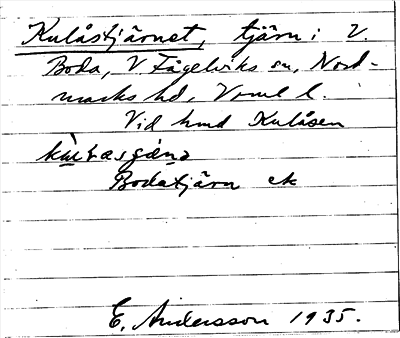 Kulåstjärnet, tjärn i V.
Boda, V. Fågelviks sn, Nord-
marks hd, Verml l.
Vid hmd Kulåsen
Bodatjärn ek
E. Andersson 1935.